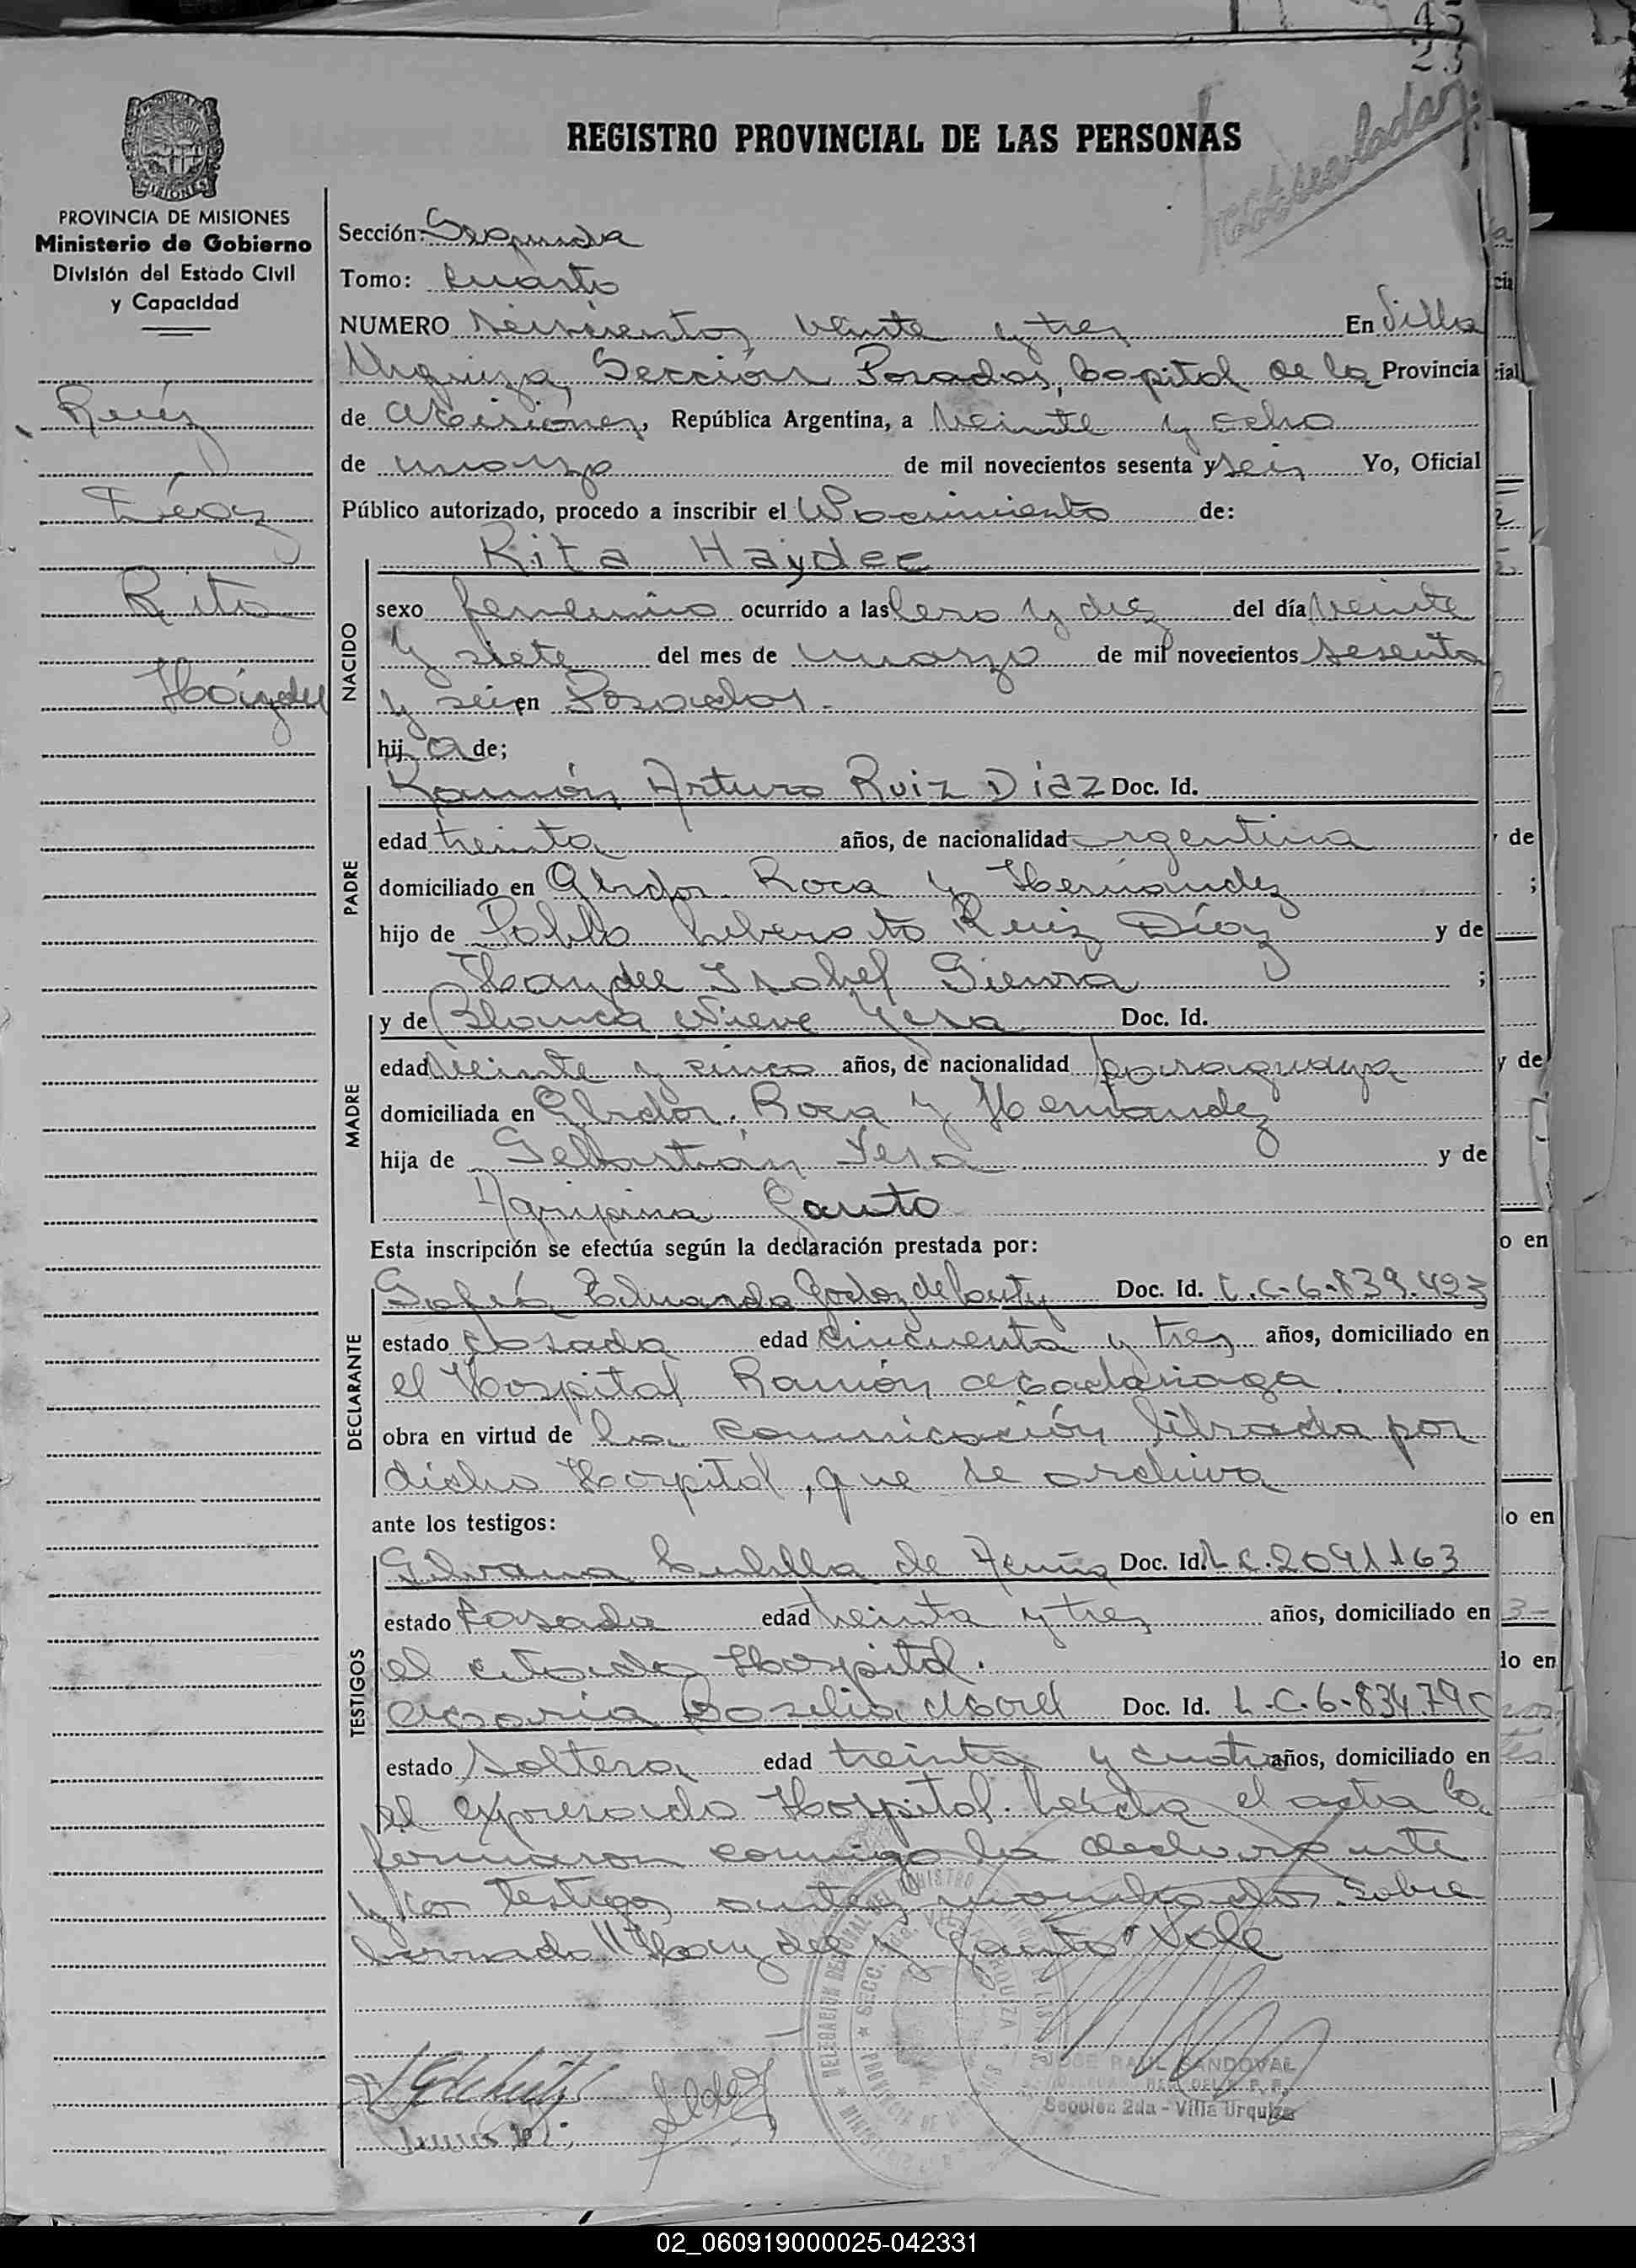 45
23
REGISTRO PROVINCIAL DE LAS PERSONAS
PROVINCIA DE MISIONES
Ministerio de Gobierno
División del Estado Civil
y Capacidad
Ruiz
Díaz
Rita
Haydee
Sección: Segunda
Tomo: Cuarto
NUMERO seiscientos veinte y tres En Villa
Urquiza, Sección Posadas, Capital de la Provincia
de Misiones, República Argentina, a veinte y ocho
de marzo de mil novecientos sesenta y seis Yo, Oficial
Público autorizado, procedo a inscribir el Nacimiento de:
NACIDO
Rita Haydee
sexo femenino ocurrido a las cero y diez del día veinte
y siete del mes de marzo de mil novecientos sesenta
y seis en Posadas.
hij a de;
PADRE
Ramón Arturo Ruiz Díaz Doc. Id.
edad treinta años, de nacionalidad argentina
domiciliado en Gbrdor. Roca y Hernández
hijo de Pablo Liberato Ruiz Díaz y de
Haydee Isabel ;
MADRE
y de Blanca Nieve Vera Doc. Id.
edad veinte y cinco años, de nacionalidad paraguaya
domiciliada en Gbrdor. Roca y Hernandez
hija de Sebastián Vera y de
Agripina Gauto
Esta inscripción se efectúa según la declaración prestada por:
DECLARANTE
Sofía Eduarda Godoy de Doc. Id. L.C. 6.839.423
estado casada edad cincuenta y tres años, domiciliado en
el Hospital Ramón Madariaga.
obra en virtud de la comunicación librada por
dicho Hospital, que se archiva
ante los testigos:
TESTIGOS
Silvana Cubilla de Doc. Id. L.C. 2091163
estado casada edad treinta y tres años, domiciliado en
el citado Hospital.
María Rozelia Morel Doc. Id. L.C. 6.834.79
estado soltera edad treinta y cuatro años, domiciliado en
el expresado Hospital. Leída el acta la
firmaron conmigo la declarante
y los testigos antes nombrados. Sobre
borrado "Haydee y Gauto" Vale
JOSE RAUL SANDOVAL
Sección 2da - Villa Urquiza
02_060919000025-042331